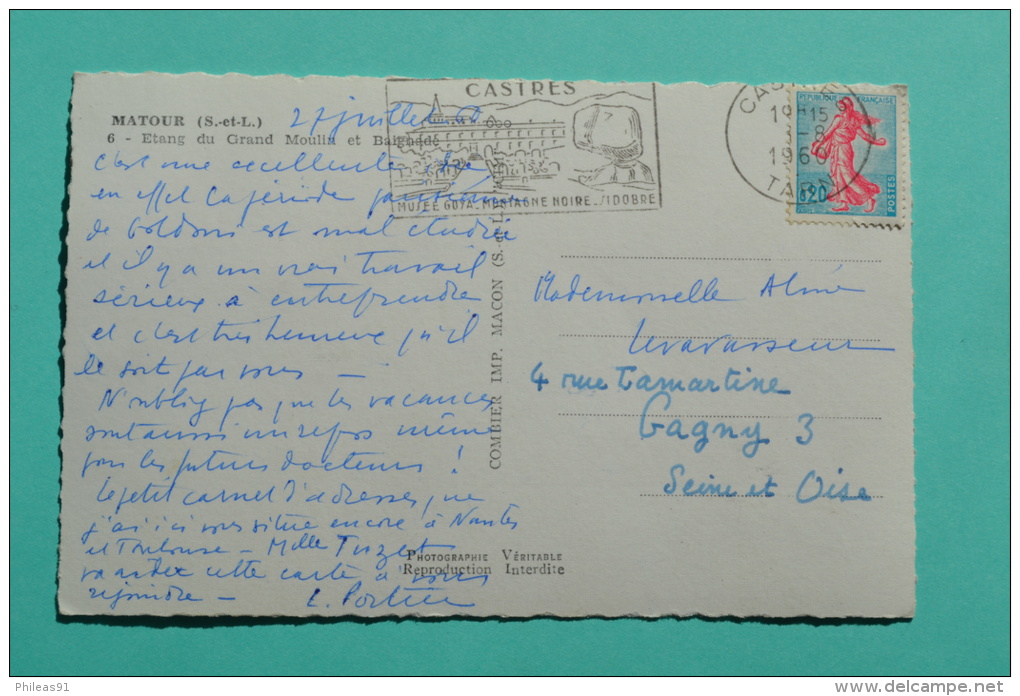 MATOUR (S.-et-L.)
6 - Etang du Grand Moulin et Baignade
27 juillet 60
c'est une excellente
en effet la période
de Goldoni est mal étudiée
et il y a un vrai travail
sérieux à entreprendre
et c'est très heureux qu'il
le soit par vous —
N'oubliez pas que les vacances
sont aussi un repos même
pour les futurs docteurs !
Le petit carnet d'adresses que
j'ai ici vous situe encore à Nantes
et Toulouse — Melle Tuzet
va aider cette carte à vous
rejoindre —
CASTRES
MUSÉE GOYA. MONTAGNE NOIRE. SIDOBRE
19H15
3-8
1960
TARN
RÉPUBLIQUE FRANÇAISE
0,20
POSTES
COMBIER IMP. MACON (S.-et-L.)
Mademoiselle Aline
Levavasseur
4 rue Lamartine
Gagny 3
Seine et Oise
PHOTOGRAPHIE VÉRITABLE
Reproduction Interdite
Phileas91
delcampe.net